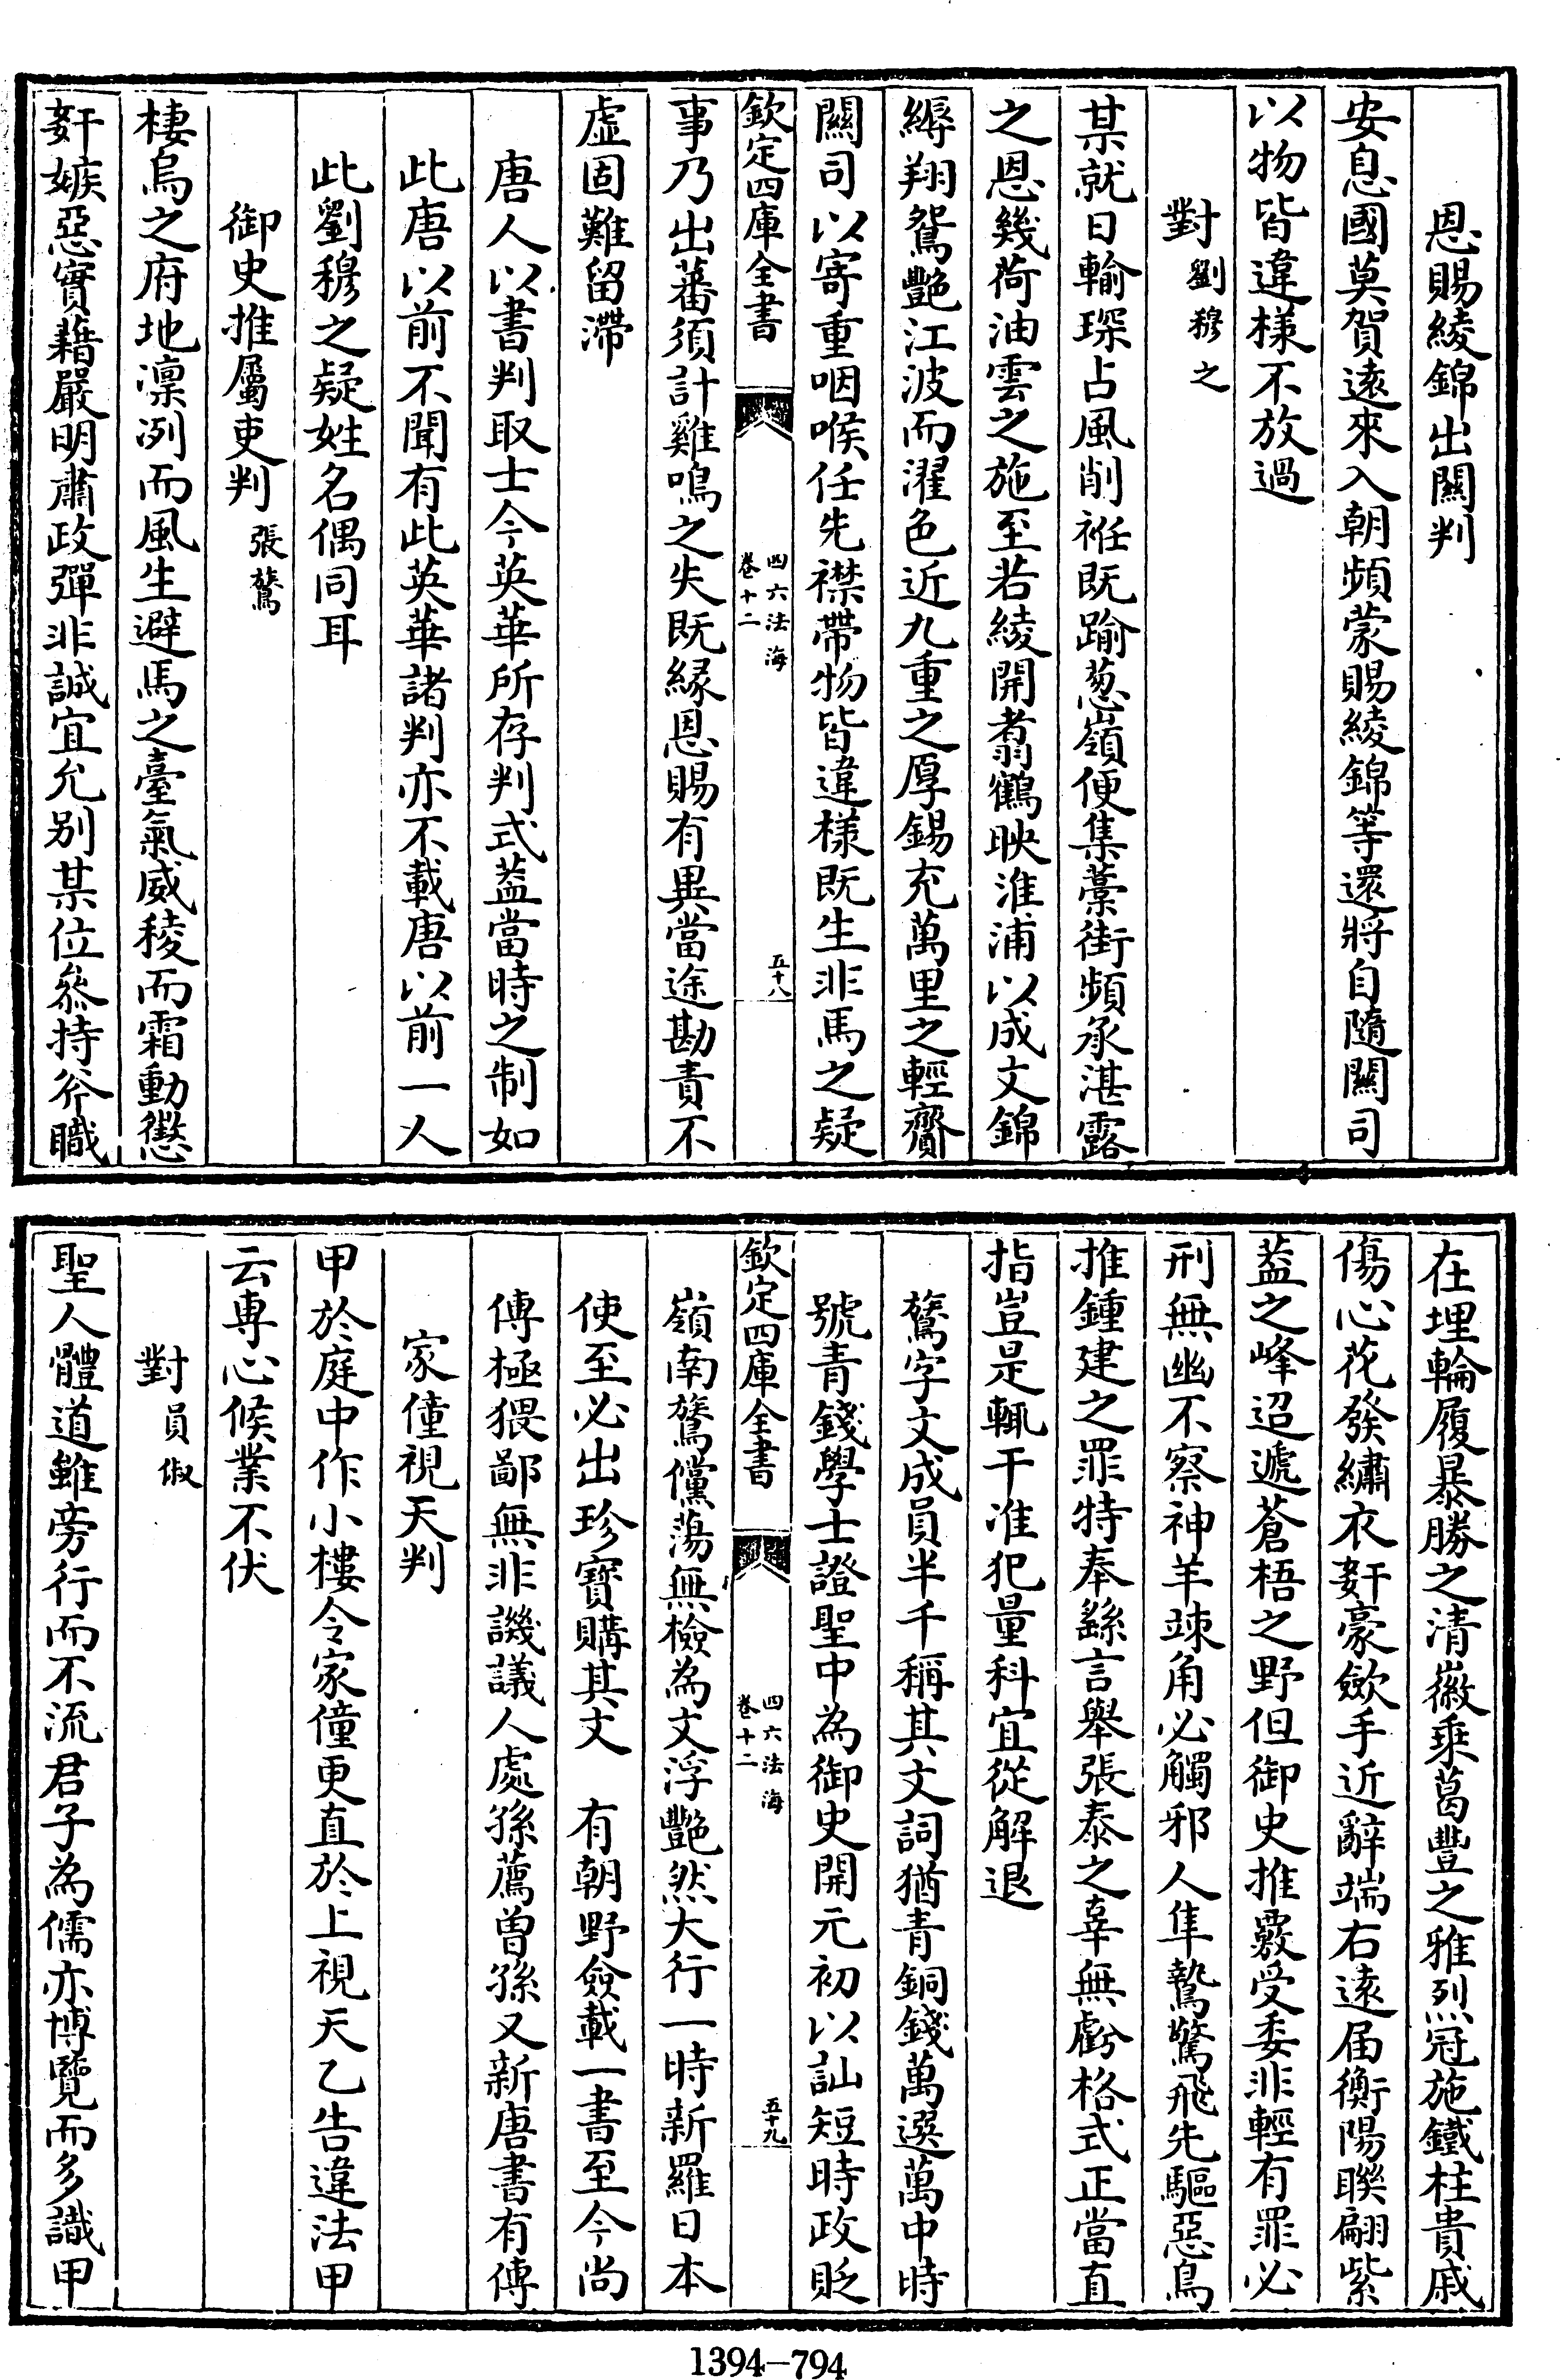 恩賜綾錦出關判
安息國莫賀遠來入朝頻蒙賜綾錦等還將自隨關司
以物皆違樣不放過
對劉穆之
某就日輸琛占風削袵既踰葱嶺便集藁街頻承湛露
之恩幾荷油雲之施至若綾開翥鶴映淮浦以成文錦
縟翔鴛艷江波而濯色近九重之厚錫充萬里之輕齎
關司以寄重咽喉任先襟帶物皆違樣既生非馬之疑
欽定四庫全書
四六法海
卷十二
五十八
事乃出蕃須計雞鳴之失既緣恩賜有異當途勘責不
虛固難留滯
唐人以書判取士今英華所存判式葢當時之制如
此唐以前不聞有此英華諸判亦不載唐以前一人
此劉穆之疑姓名偶同耳
御史推屬吏判張鷟
棲烏之府地凜冽而風生避馬之臺氣威稜而霜動懲
姧嫉惡實藉嚴明肅政彈非誠宜允別某位叅持斧職
在埋輪履暴勝之清徽乘葛豐之雅烈冠施鐵柱貴戚
傷心花發繡衣姧豪歛手近辭端右遠届衡陽聮翩紫
葢之峰迢遞蒼梧之野但御史推覈受委非輕有罪必
刑無幽不察神羊竦角必觸邪人隼鷙驚飛先驅惡鳥
推鍾建之罪特奉繇言舉張泰之辜無虧格式正當直
指豈是輒干准犯量科宜從解退
鷟字文成員半千稱其文詞猶青銅錢萬選萬中時
號青錢學士證聖中為御史開元初以訕短時政貶
欽定四庫全書
四六法海
卷十二
五十九
嶺南鷟儻蕩無檢為文浮艷然大行一時新羅日本
使至必出珍寶購其文　有朝野僉載一書至今尚
傳極猥鄙無非譏議人處孫薦曾孫又新唐書有傳
家僮視天判
甲於庭中作小樓令家僮更直於上視天乙告違法甲
云專心候業不伏
對員俶
聖人體道雖旁行而不流君子為儒亦博覽而多識甲
1394—794